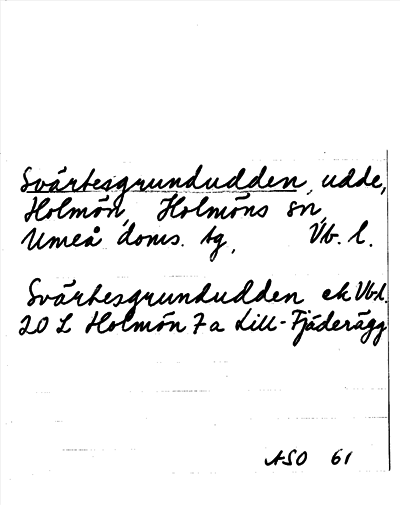 Svärtesgrundudden, udde,
Holmön, Holmöns sn,
Umeå doms. tg, Vb. l.
Svärtesgrundudden ek Vb.l.
20 L Holmön 7 a Lill-Fjäderägg
ASO 61